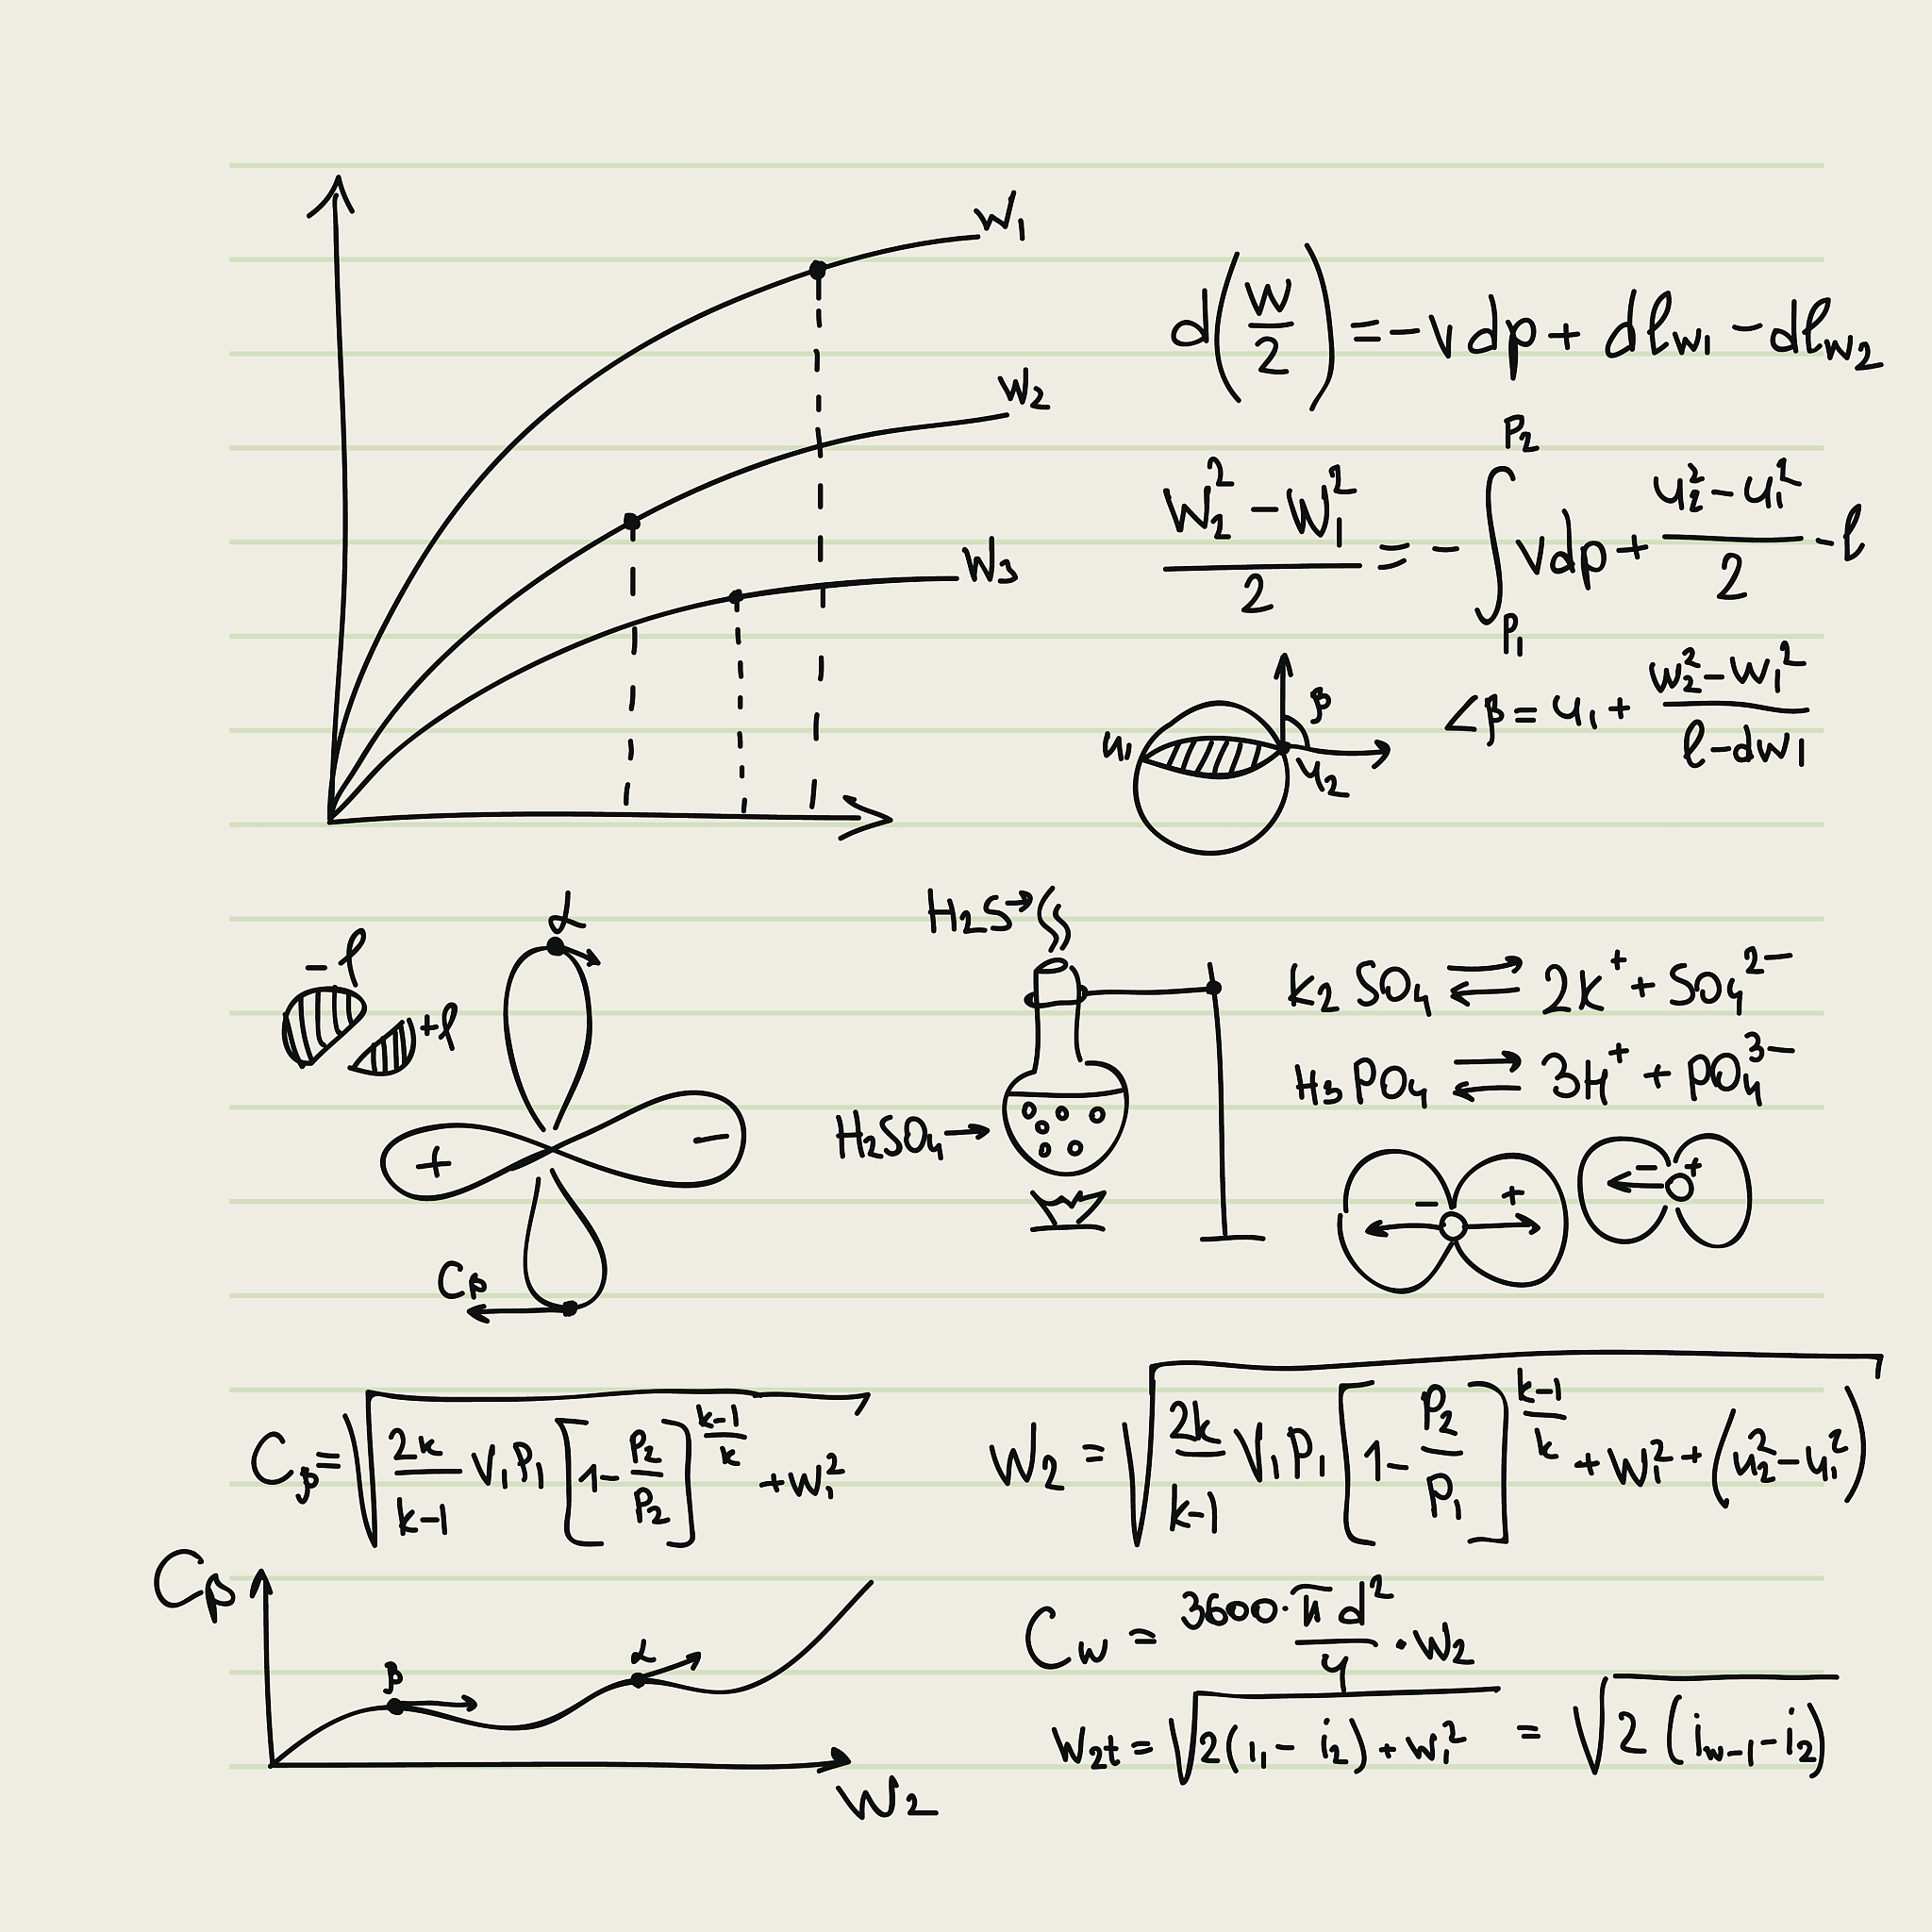 W₁
W₂
W₃
d(W/2) = -vdp + dℓw₁ - dℓw₂
(W₂² - W₁²)/2 = - ∫p₁^p₂ vdp + (u₂² - u₁²)/2 - ℓ
β
u₁
u₂
∠β = u₁ + (w₂² - w₁²)/(ℓ - dw₁)
-ℓ
+ℓ
α
+
-
Cβ
H₂S→
H₂SO₄→
K₂SO₄ ⇄ 2K⁺ + SO₄²⁻
H₃PO₄ ⇄ 3H⁺ + PO₄³⁻
- +
- +
Cβ = √((2k/(k-1)) V₁P₁ [1 - P₂/P₂]^((k-1)/k) + W₁²)
W₂ = √((2k/(k-1)) V₁P₁ [1 - P₂/P₁]^((k-1)/k) + W₁² + (u₂² - u₁²))
Cβ
β
α
W₂
Cw = 3600 · πd²/4 · W₂
W₂t = √(2(i₁ - i₂) + w₁²) = √(2(iw-1 - i₂))